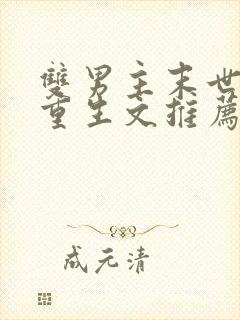 雙男主末世
重生文推薦
成元清